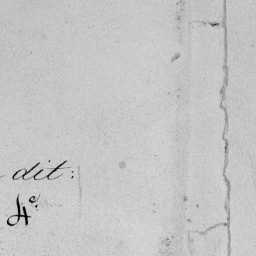 dit:
4º